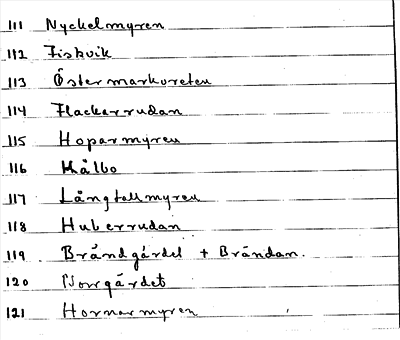 111 Nyckelmyren
112 Fiskvik
113 Östermarksreten
114 Flackerrudan
115 Hoparmyren
116 Kålbo
117 Långtallmyren
118 Huberrudan
119 Brändgärdet + Brändan.
120 Norrgärdet
121 Hormarmyren